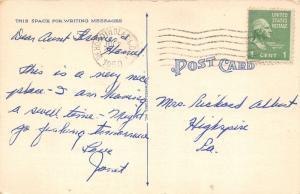 THIS SPACE FOR WRITING MESSAGES
Dear Aunt Frances &
This is a very nice
place - I am having
a swell time - Might
go fishing tomorrow
Love
Janet
1950
POST CARD
1 CENT 1
Mrs. Richard Albert
Highspire
Pa.